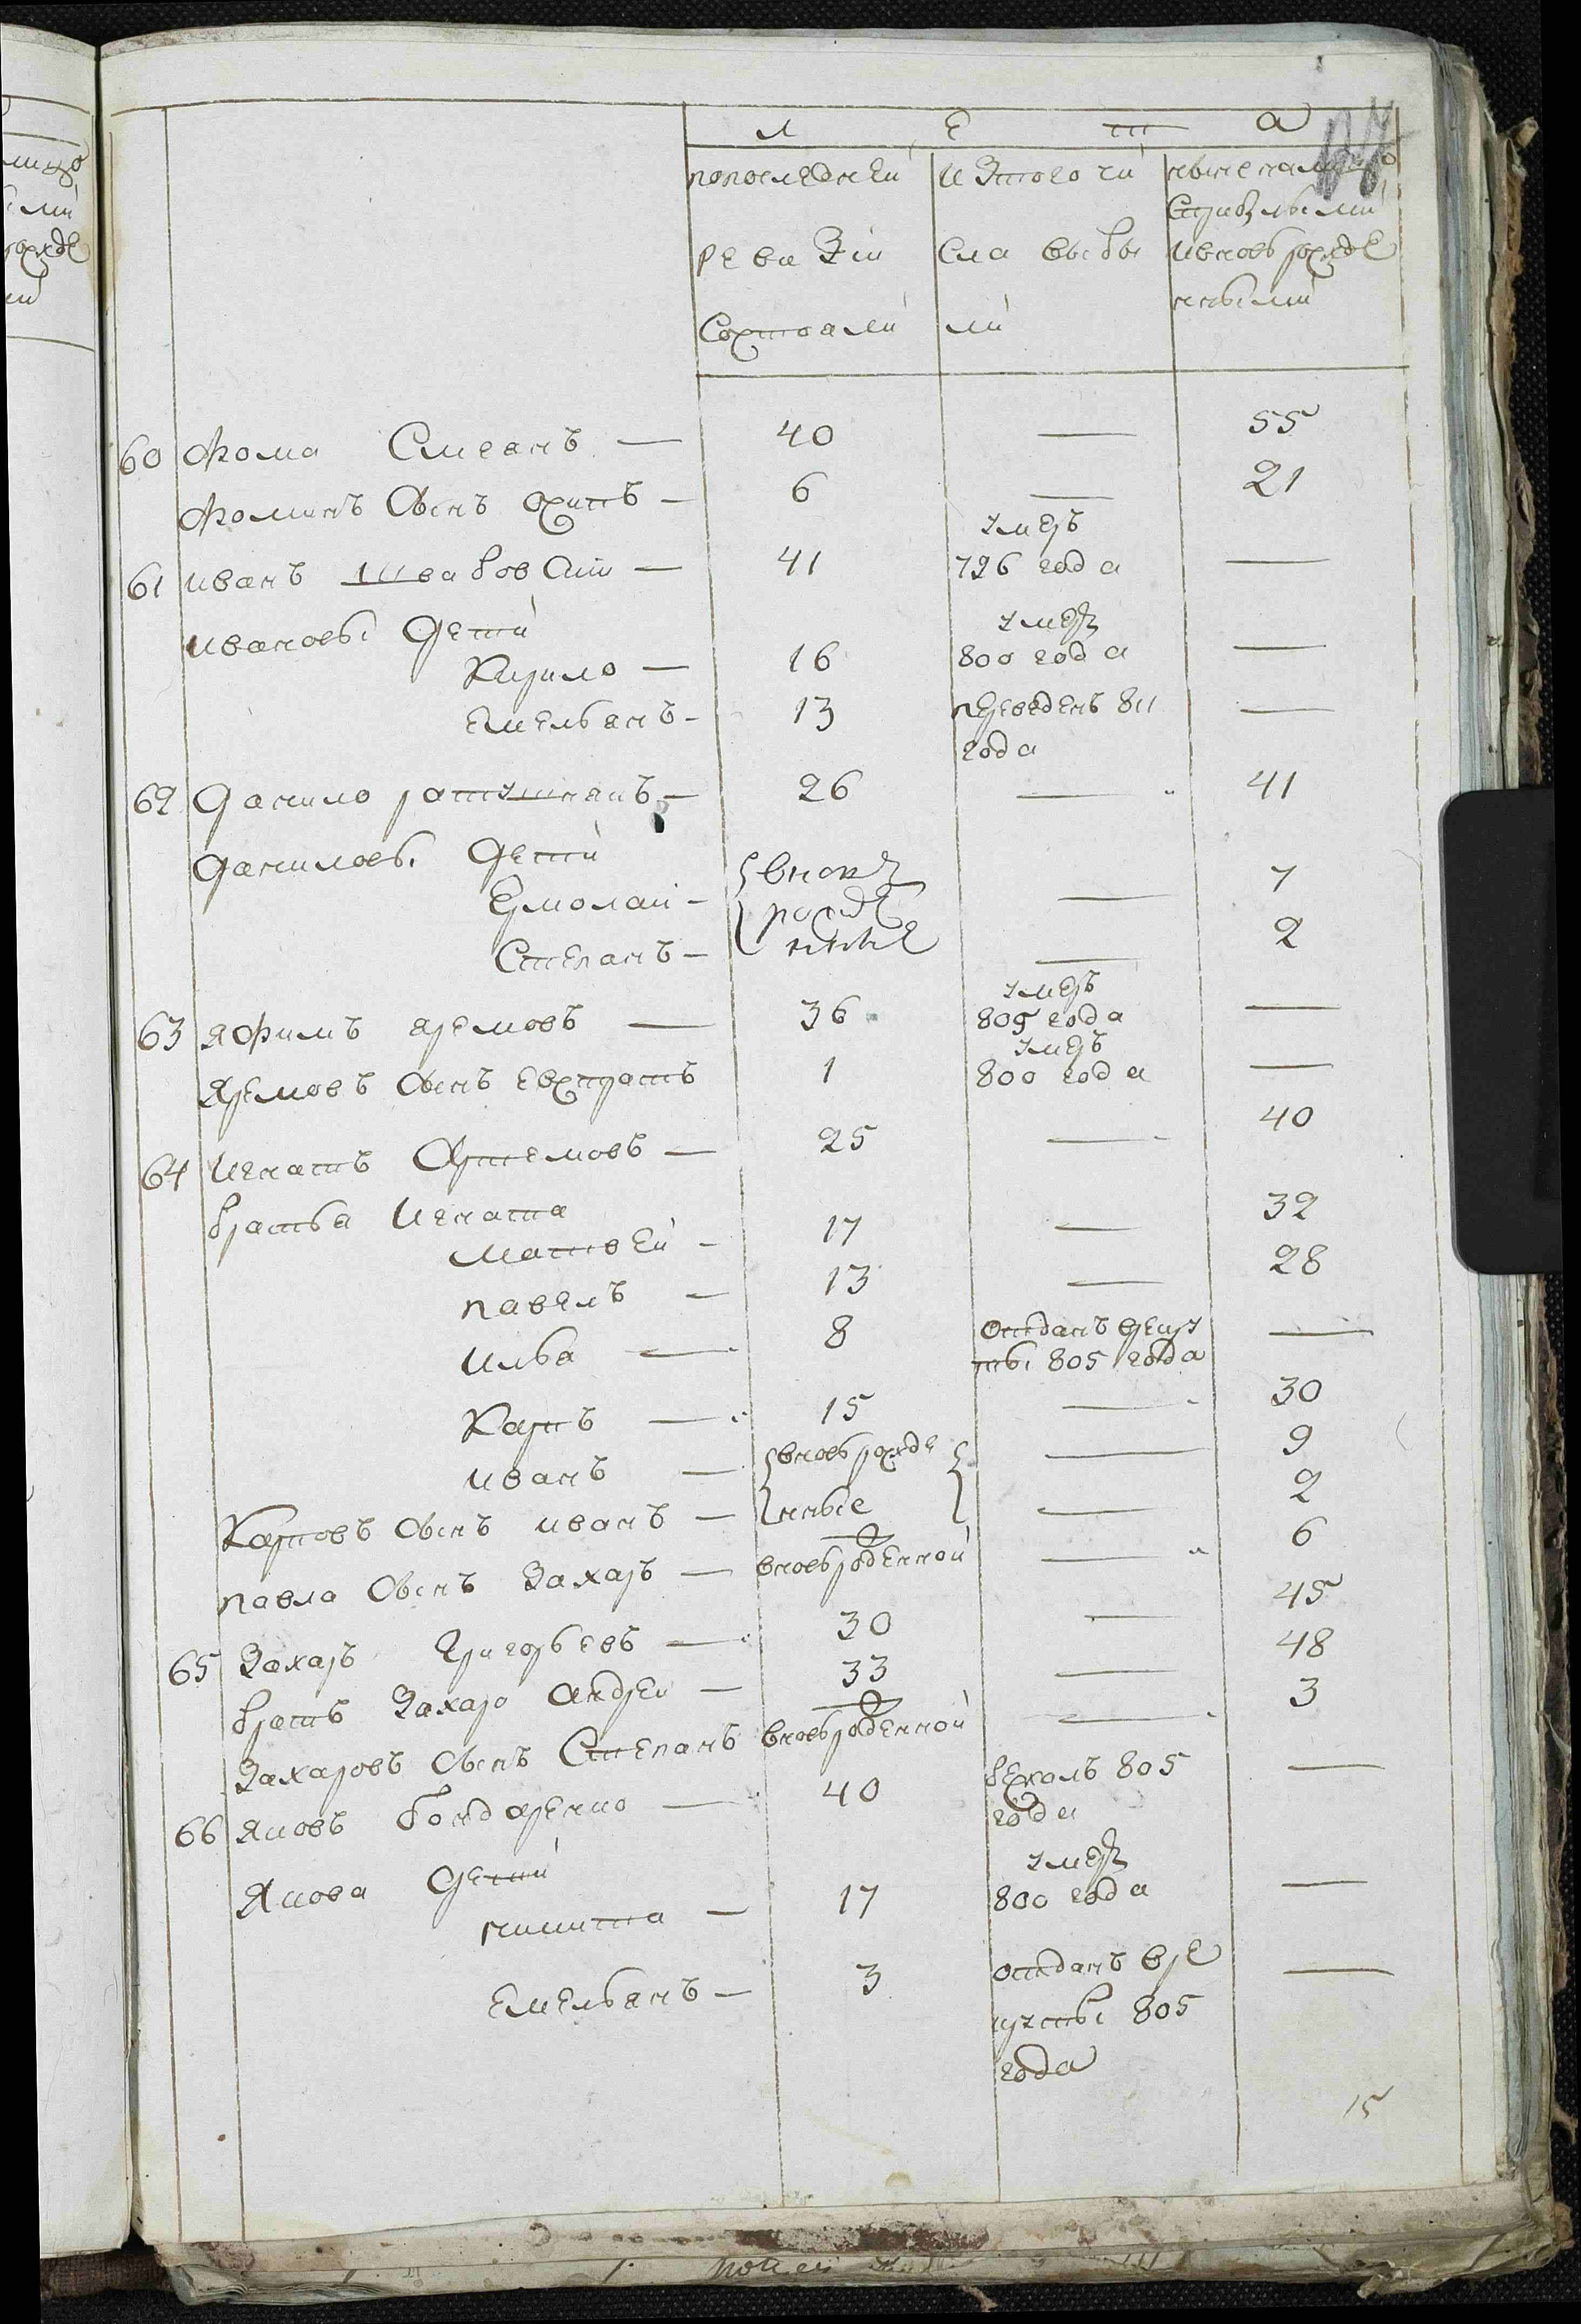 Л Е Т А
попоследней изтого чи ныне на лицо
сприбылыми
ревизии сла выбы ивновь рожде
нными
состояли ли
60 Фома Смеянъ — 40 — 55
Фоминъ Сынъ осипъ — 6 — 21
умеръ
61 иванъ — 41 796 года —
ивановы Дети умеръ
Кирило — 16 800 года —
емельянъ — 13 переведенъ 811 —
года
62 Данило — 26 — 41
Даниловы Дети
Ермолаи — вновь — 7
рожде
Степанъ — нные — 2
умеръ
63 яФимъ яремовъ — 36 805 года —
умеръ
Яремовъ Сынъ евстратъ 1 800 года —
64 игнатъ Артемовъ — 25 — 40
братья Игната
матвей — 17 — 32
павелъ — 13 — 28
илья — 8 отданъ врекру —
ты 805 года
Карпъ — 15 — 30
иванъ — вновь рожде — 9
Карповъ Сынъ иванъ — нные — 2
павла Сынъ Захаръ — вновьрожденной — 6
65 Захаръ Григорьевъ — 30 — 45
братъ Захара Андреи — 33 — 48
Захаровъ Сынъ Степанъ вновьрожденной — 3
66 яковъ бондаренко — 40 бежалъ 805 —
года
Якова Дети умеръ
никита — 17 800 года —
емельянъ — 3 отданъ вре —
круты 805
года
15